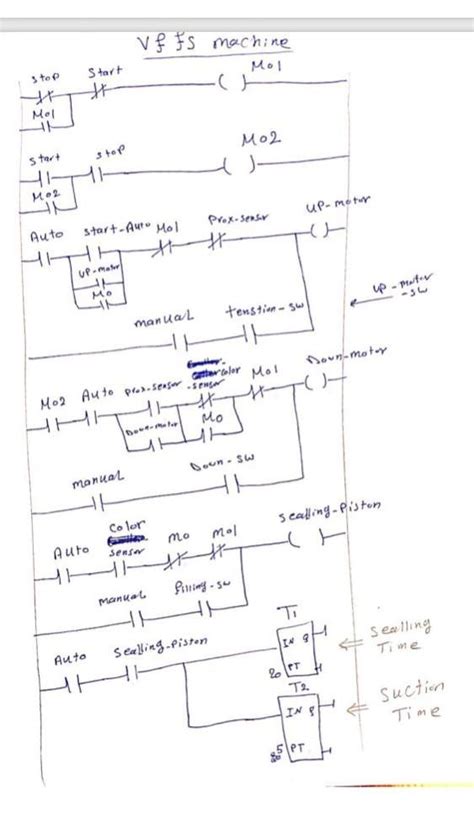 Vffs machine
stop Start Mo1
Mo1
start stop Mo2
Mo2
Auto start-Auto Mo1 Prox-sensor UP-motor
UP-motor
Mo
manual tenstion-sw
up-motor
-sw
Down-motor
Mo2 Auto prox-sensor color Mo1
-sensor
Down-motor Mo
manual Down-sw
Sealling-Piston
Color
Auto sensor mo mo1
manual filling-sw
Auto Sealling-Piston T1
IN Q
20 PT
Sealling
Time
T2
IN Q
PT
Suction
Time